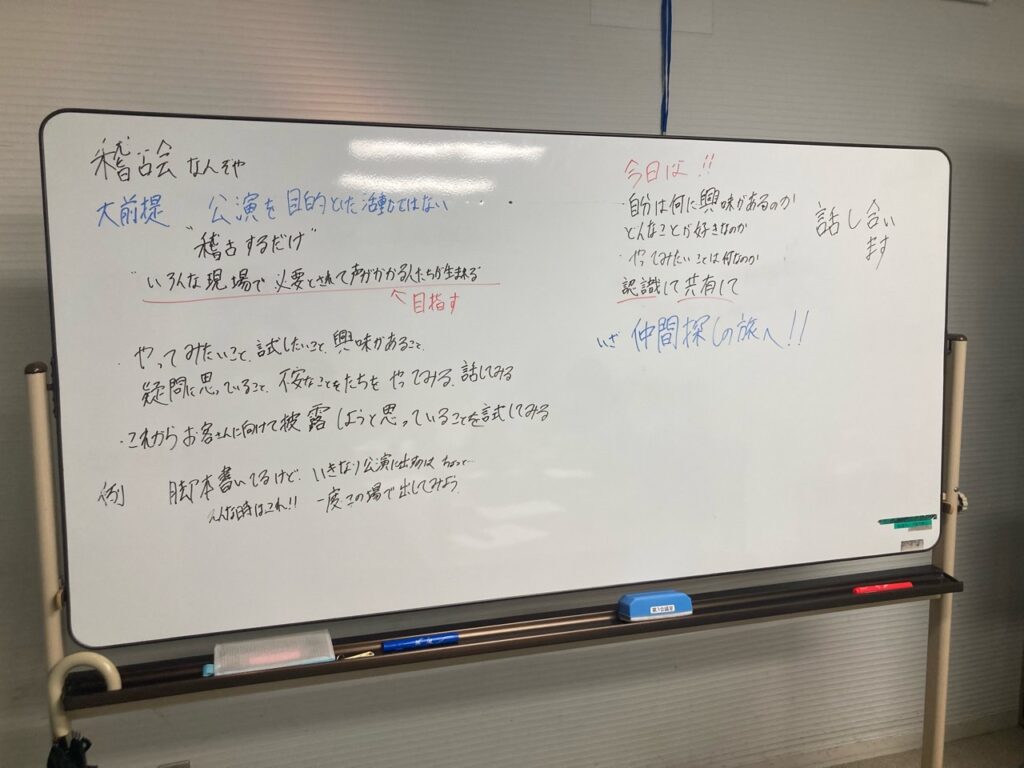 稽古会 なんぞや
大前提 公演を目的とした活動ではない
"稽古するだけ"
"いろんな現場で必要とされて声がかかる人たちが生まれる"
↖目指す
・やってみたいこと、試したいこと、興味があること、
疑問に思っていること、不安なことをやってみる、話してみる
・これからお客さんに向けて披露しようと思っていることを試してみる
例 脚本書いてるけど、いきなり公演に出すのはちょっと…
そんな時はこれ!! 一度この場で出してみよう
今日は!!
・自分は何に興味があるのか
どんなことが好きなのか
・やってみたいことは何なのか
認識して共有して
話し合い
ます
いざ 仲間探しの旅へ!!
第1会議室